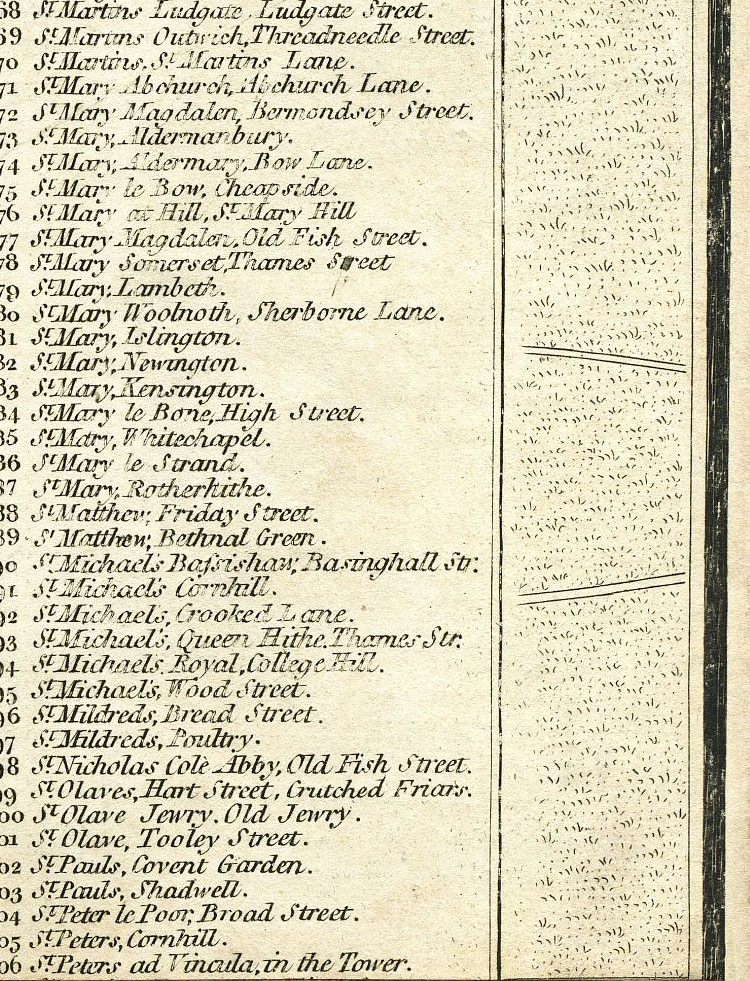 68 St Martins Ludgate, Ludgate Street.
69 St Martins Outwich, Threadneedle Street.
70 St Martins. St Martins Lane.
71 St Mary Abchurch, Abchurch Lane.
72 St Mary Magdalen, Bermondsey Street.
73 St Mary, Aldermanbury.
74 St Mary, Aldermary, Bow Lane.
75 St Mary le Bow, Cheapside.
76 St Mary at Hill, St Mary Hill
77 St Mary Magdalen, Old Fish Street.
78 St Mary Somerset, Thames Street
79 St Mary, Lambeth.
80 St Mary Woolnoth, Sherborne Lane.
81 St Mary, Islington.
82 St Mary, Newington.
83 St Mary, Kensington.
84 St Mary le Bone, High Street.
85 St Mary, Whitechapel.
86 St Mary le Strand.
87 St Mary, Rotherhithe.
88 St Matthew, Friday Street.
89 St Matthew, Bethnal Green.
90 St Michaels Baſsishaw, Basinghall Str.
91 St Michael's Cornhill.
92 St Michaels, Crooked Lane.
93 St Michael's, Queen Hithe, Thames Str.
94 St Michaels Royal, College Hill.
95 St Michael's, Wood Street.
96 St Mildreds, Bread Street.
97 St Mildreds, Poultry.
98 St Nicholas Cole Abby, Old Fish Street.
99 St Olaves, Hart Street, Crutched Friars.
00 St Olave Jewry. Old Jewry.
01 St Olave, Tooley Street.
02 St Pauls, Covent Garden.
03 St Pauls, Shadwell.
04 St Peter le Poor, Broad Street.
05 St Peters, Cornhill.
06 St Peters ad Vincula, in the Tower.